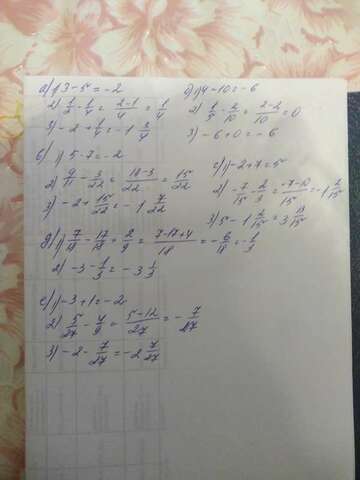 а) 1) 3-5=-2
2) 1/2-1/4=2-1/4=1/4
3) -2+1/4=-1 3/4
б) 1) 4-10=-6
2) 1/5-2/10=2-2/10=0
3) -6+0=-6
в) 1) 5-7=-2
2) 9/11-3/22=18-3/22=15/22
3) -2+15/22=-1 7/22
г) 1) -2+7=5
2) -7/15-2/3=-7-10/15=-1 2/15
3) 5-1 2/15=3 13/15
д) 1) 7/18-17/18+2/9=7-17+4/18=-6/18=-1/3
2) -3-1/3=-3 1/3
е) 1) -3+1=-2
2) 5/27-4/9=5-12/27=-7/27
3) -2-7/27=-2 7/27